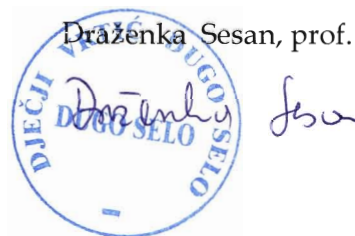 Draženka Sesan, prof.
DJEČJI VRTIĆ DUGO SELO
DUGO SELO
Draženka Sesan